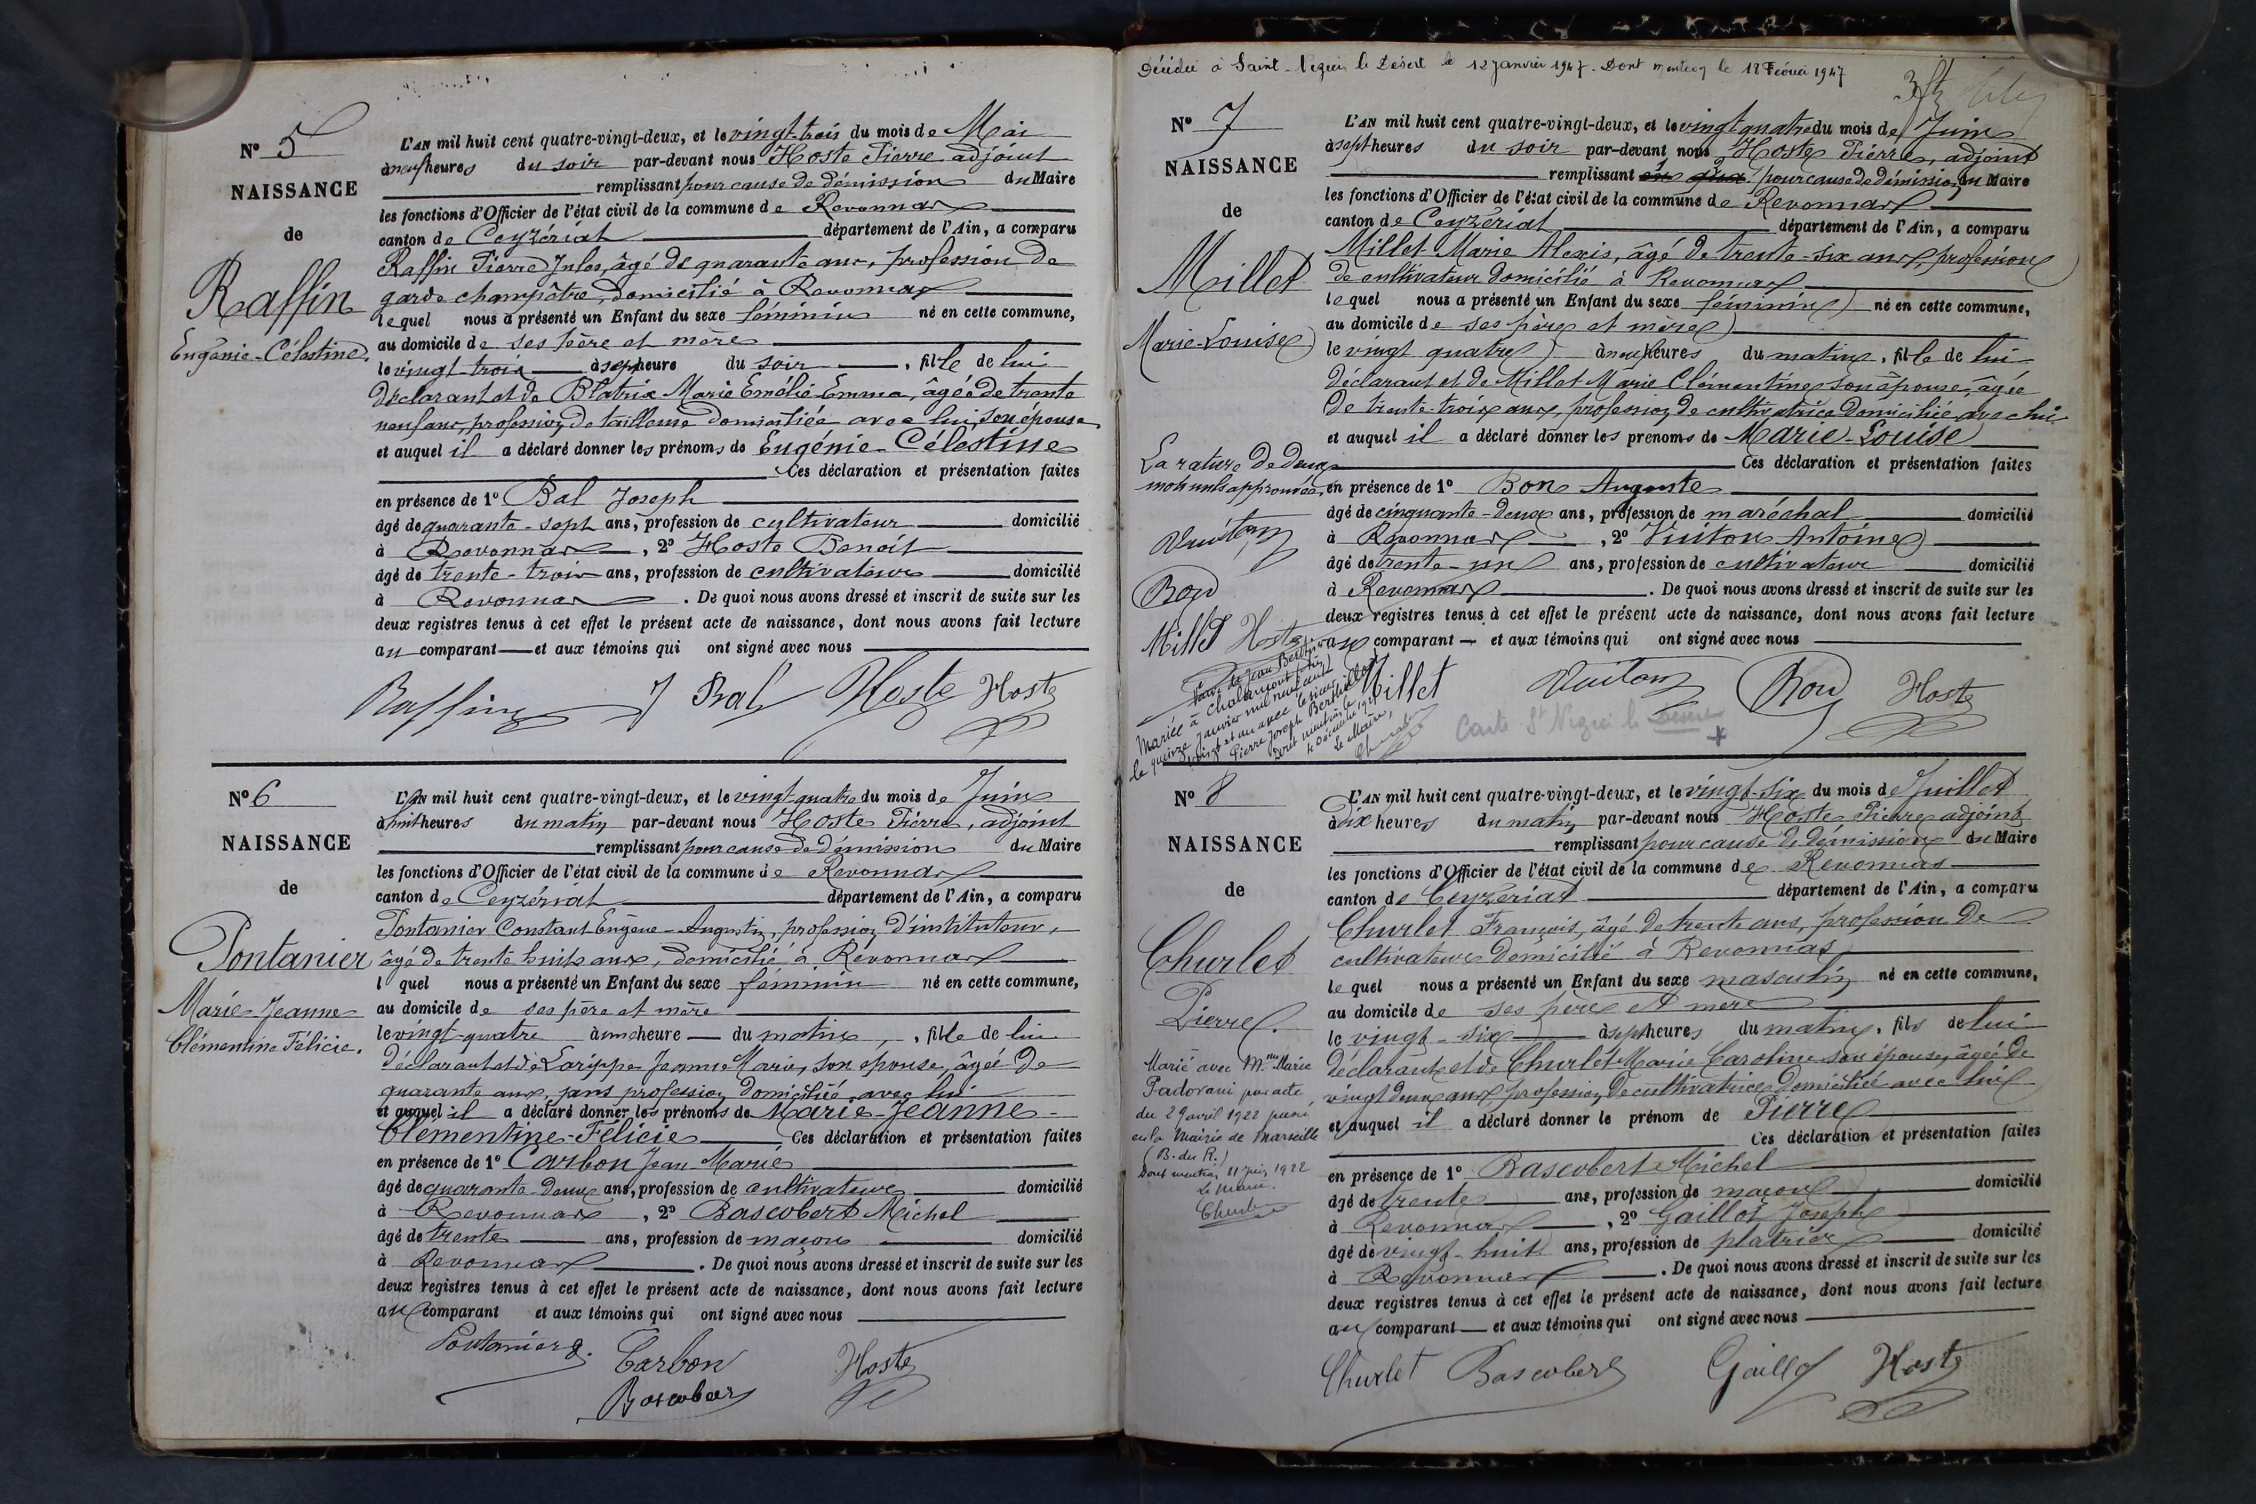 N° 5
NAISSANCE
de
Raffin
Eugénie-Célestine.
L'AN mil huit cent quatre-vingt-deux, et le vingt-trois du mois de Mai
à neuf heures du soir par-devant nous Hoste Pierre adjoint
remplissant pour cause de démission du Maire
les fonctions d'Officier de l'état civil de la commune de Revonnas
canton de Ceyzériat département de l'Ain, a comparu
Raffin Pierre Jules, âgé de quarante ans, profession de
garde champêtre, domicilié à Revonnas
lequel nous a présenté un Enfant du sexe féminin né en cette commune,
au domicile de ses père et mère
le vingt trois à sept heure du soir, fille de lui
déclarant et de Blatrix Marie Emélie Emma, âgée de trente
neuf ans, profession de tailleuse domiciliée avec lui, son épouse
et auquel il a déclaré donner les prénoms de Eugénie-Célestine
Ces déclaration et présentation faites
en présence de 1° Bal Joseph
âgé de quarante-sept ans, profession de cultivateur domicilié
à Revonnas, 2° Hoste Benoit
âgé de trente-trois ans, profession de cultivateur domicilié
à Revonnas. De quoi nous avons dressé et inscrit de suite sur les
deux registres tenus à cet effet le présent acte de naissance, dont nous avons fait lecture
au comparant et aux témoins qui ont signé avec nous
Raffin J Bal Hoste Hoste
N° 6
NAISSANCE
de
Pontanier
Marie-Jeanne
Clémentine Félicie.
L'AN mil huit cent quatre-vingt-deux, et le vingt-quatre du mois de Juin
à huit heures du matin par-devant nous Hoste Pierre, adjoint
remplissant pour cause de démission du Maire
les fonctions d'Officier de l'état civil de la commune de Revonnas
canton de Ceyzériat département de l'Ain, a comparu
Pontanier Constant Eugène-Augustin, profession d'instituteur,
âgé de trente huit ans, domicilié à Revonnas
l quel nous a présenté un Enfant du sexe féminin né en cette commune,
au domicile de ses père et mère
le vingt-quatre à une heure du matin, fille de lui
déclarant et de Larippe Jeanne Marie, son épouse, âgée de
quarante ans, sans profession domiciliée avec lui
et auquel il a déclaré donner les prénoms de Marie-Jeanne-
Clémentine-Félicie Ces déclaration et présentation faites
en présence de 1° Carbon Jean Marie
âgé de quarante-deux ans, profession de cultivateur domicilié
à Revonnas, 2° Bascobert Michel
âgé de trente ans, profession de maçon domicilié
à Revonnas. De quoi nous avons dressé et inscrit de suite sur les
deux registres tenus à cet effet le présent acte de naissance, dont nous avons fait lecture
au comparant et aux témoins qui ont signé avec nous
Pontanier Carbon Hoste
Bascobert
Décédée à Saint-Nizier le Désert le 12 Janvier 1947. Dont mention le 18 Février 1947
N° 7
NAISSANCE
de
Millet
Marie-Louise
La rature de deux
mots nuls approuvée.
Vuiton
Bon
Millet Hoste
Mariée à Chalamont (Ain)
le quinze Janvier mil neuf cent
vingt et un avec le sieur
Pierre Joseph Berthillot
Dont mention le
Le Maire,
L'AN mil huit cent quatre-vingt-deux, et le vingt quatre du mois de Juin
à sept heures du soir par-devant nous Hoste Pierre, adjoint
remplissant pour cause de démission du Maire
les fonctions d'Officier de l'état civil de la commune de Revonnas
canton de Ceyzériat département de l'Ain, a comparu
Millet Marie Alexis, âgé de trente-six ans, profession
de cultivateur domicilié à Revonnas
lequel nous a présenté un Enfant du sexe féminin né en cette commune,
au domicile de ses père et mère
le vingt quatre à neuf heures du matin, fille de lui
déclarant et de Millet Marie Clémentine son épouse, âgée
de trente-trois ans, profession de cultivatrice domiciliée avec lui
et auquel il a déclaré donner les prenoms de Marie-Louise
Ces déclaration et présentation faites
en présence de 1° Bon Auguste
âgé de cinquante-deux ans, profession de maréchal domicilié
à Revonnas, 2° Vuiton Antoine
âgé de trente-un ans, profession de cultivateur domicilié
à Revonnas. De quoi nous avons dressé et inscrit de suite sur les
deux registres tenus à cet effet le présent acte de naissance, dont nous avons fait lecture
au comparant et aux témoins qui ont signé avec nous
Millet Vuiton Bon Hoste
Carte St Nizier le Désert
N° 8
NAISSANCE
de
Churlet
Pierre.
Marié avec Mlle Marie
Padovani par acte
du 29 avril 1922 passé
en la Mairie de Marseille
(B. du R.)
Dont mention 11 Juin 1922
Le Maire.
Churlet
L'AN mil huit cent quatre-vingt-deux, et le vingt-six du mois de Juillet
à dix heures du matin par-devant nous Hoste Pierre adjoint
remplissant pour cause de démission du Maire
les fonctions d'Officier de l'état civil de la commune de Revonnas
canton de Ceyzériat département de l'Ain, a comparu
Churlet François, âgé de trente ans, profession de
cultivateur domicilié à Revonnas
lequel nous a présenté un Enfant du sexe masculin né en cette commune,
au domicile de ses père et mère
le vingt-six à sept heures du matin, fils de lui
déclarant et de Churlet Marie Caroline son épouse, âgée de
vingt deux ans profession de cultivatrice domiciliée avec lui
et auquel il a déclaré donner le prénom de Pierre
Ces déclaration et présentation faites
en présence de 1° Bascobert Michel
âgé de trente ans, profession de maçon domicilié
à Revonnas, 2° Gaillot Joseph
âgé de vingt-huit ans, profession de platrier domicilié
à Revonnas. De quoi nous avons dressé et inscrit de suite sur les
deux registres tenus à cet effet le présent acte de naissance, dont nous avons fait lecture
au comparant et aux témoins qui ont signé avec nous
Churlet Bascobert Gaillot Hoste